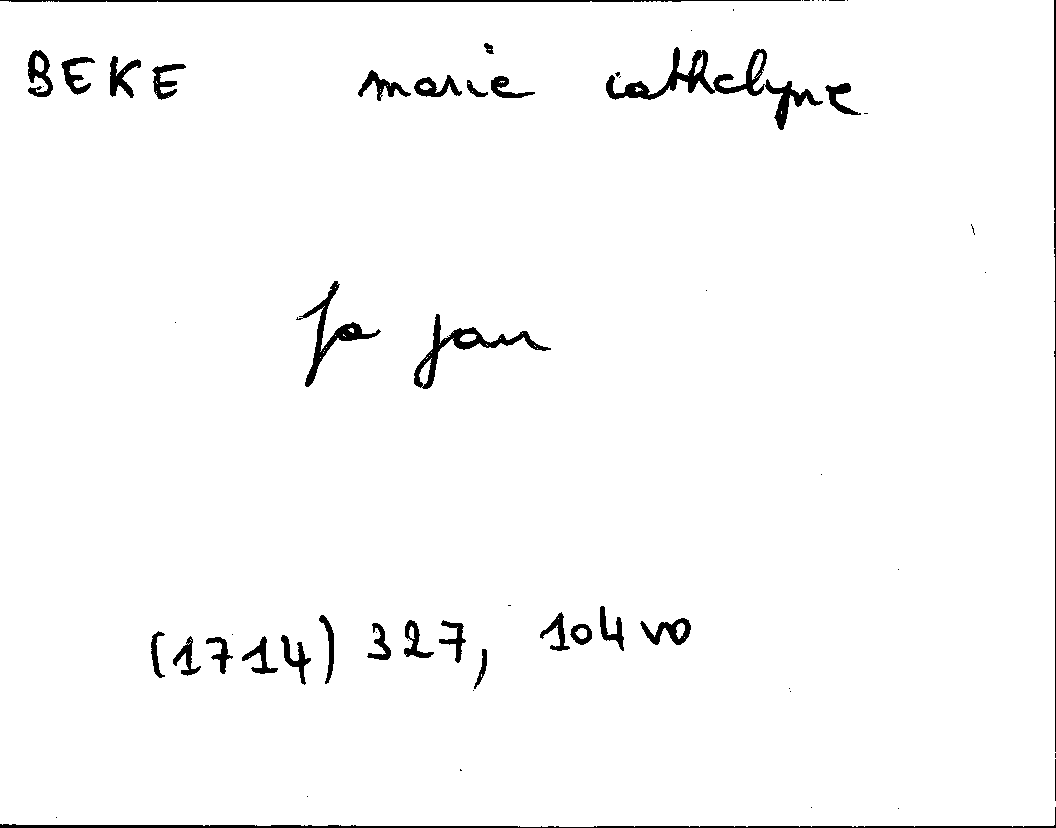 BEKE marie cathelyne
fa jan
(1714) 327, 104 vo